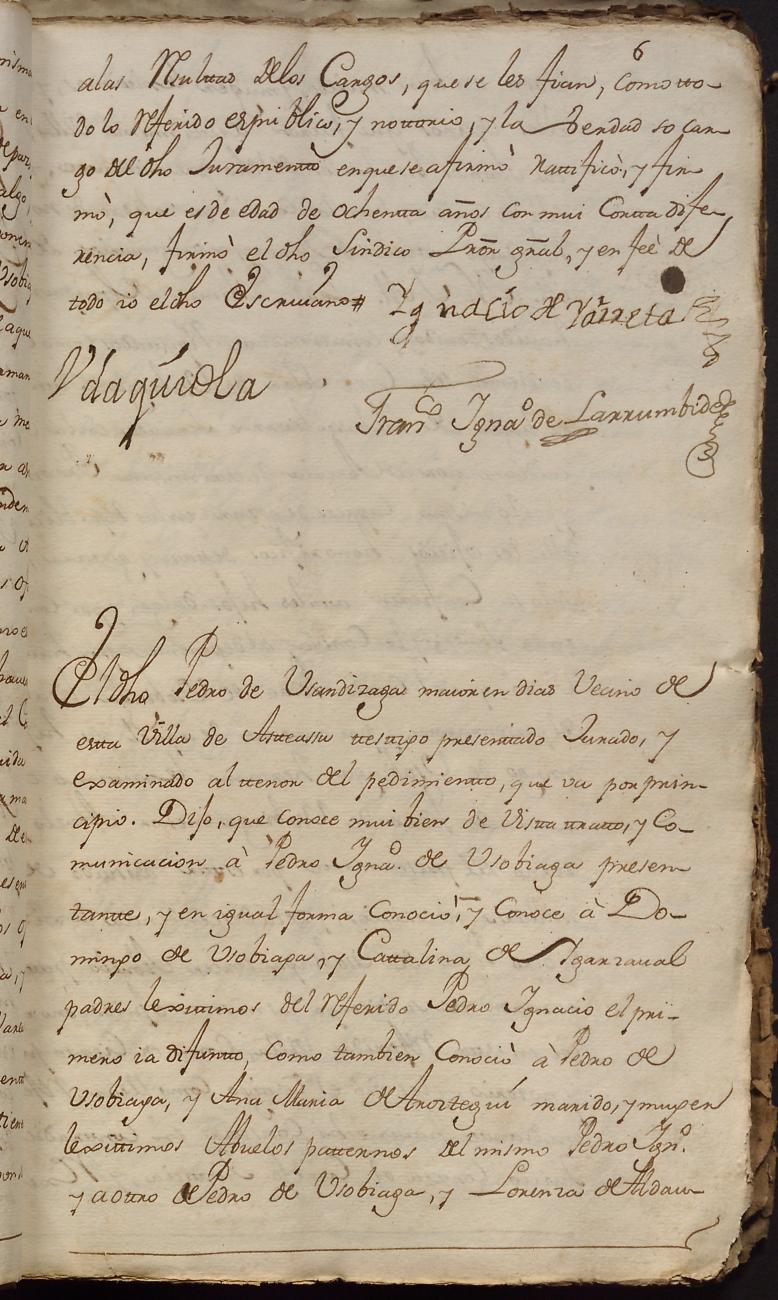 6
alas Resultas delos Cargos, que se les fian, como tto-
do lo Referido es ppublico, y nottorio, y la Berdad so car-
go del dho Juramento en que se afirmò rattificò, y fir-
mò, que es de edad de ochentta años con mui Cortta dife-
rencia, firmò el dho Sindico Pror gñal, y en feè de
todo io el dho Escriuano#
Ygnacio de Yarreta
Vdaquiola
Franco Ignao de Larrumbide
El dho Pedro de Usandizaga maior en dias Vecino de
estta Villa de Asteassu ttesttigo presenttado Jurado, y
examinado al ttenor del pedimientto, que va por prin-
cipio. Dijo, que conoce mui bien de Vistta tratto, y Co-
municacion à Pedro Ignao. de Usobiaga presen-
tantte, y en igual forma Conociò, y Conoce à Do-
mingo de Usobiaga, y Cattalina de Igarzaual
padres lexittimos del Referido Pedro Ignacio el pri-
mero ia difuntto, como tambien Conociò à Pedro de
Usobiaga, y Ana Maria de Arortegui marido, y muger
lexittimos Abuelos patternos del mismo Pedro Igno.
y a ottro Pedro de Usobiaga, y Lorenza de Aldau-